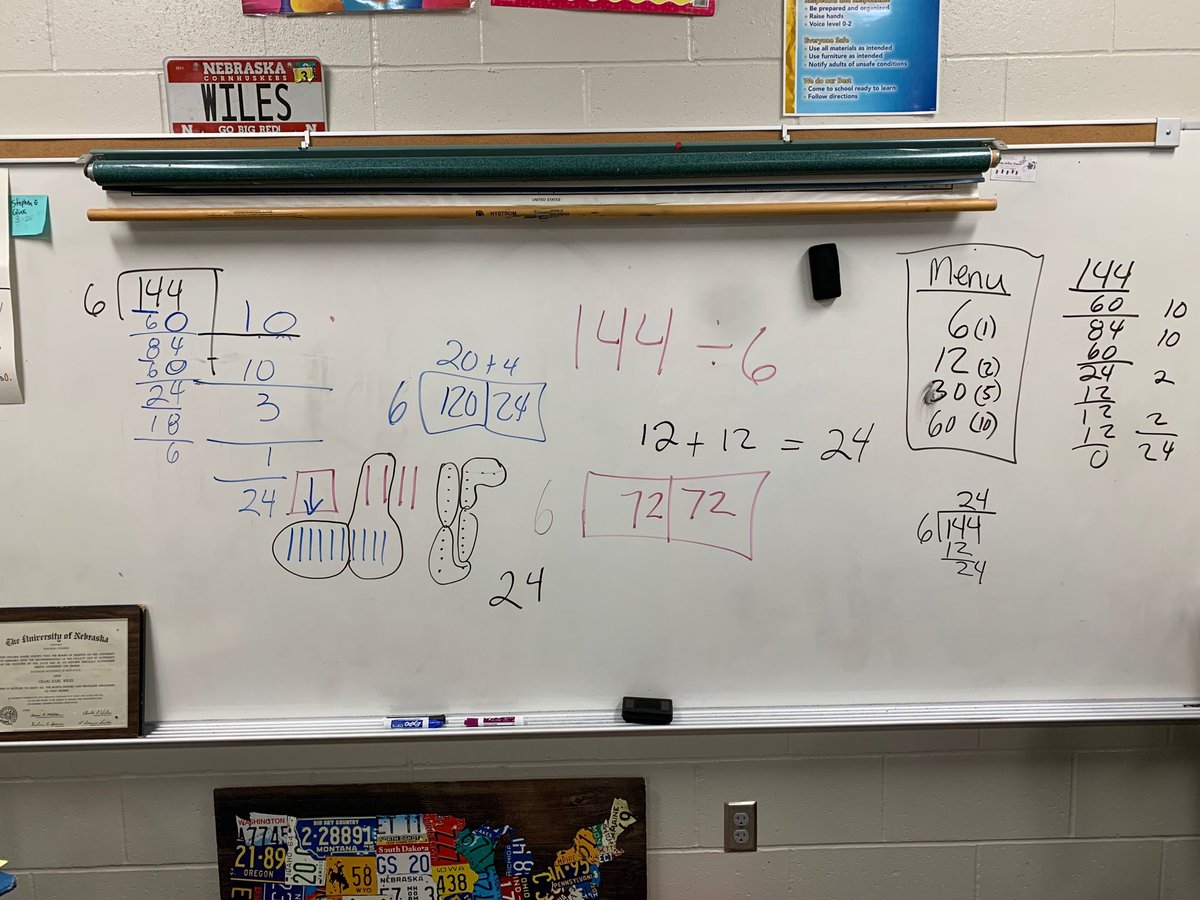 Be prepared and organized
Raise hands
Voice level 0-2
Everyone Safe
Use all materials as intended
Use furniture as intended
Notify adults of unsafe conditions
We do our Best
Come to school ready to learn
Follow directions
NEBRASKA
CORNHUSKERS
WILES
N GO BIG RED! N
UNITED STATES
NYSTROM
Stephen G
6 144
60 10
84
60 10
24 3
18
6 1
24
20+4
6 120 24
24
144 ÷ 6
12 + 12 = 24
6 72 72
Menu
6 (1)
12 (2)
30 (5)
60 (10)
144
60 10
84 10
60
24 2
12
12 2
12
0 24
24
6 144
12
24
The University of Nebraska
CRAIG EARL WILES
EXPO
WASHINGTON
A7745
21·89
OREGON
BIG SKY COUNTRY
2·28891
MONTANA
ET 11
NORTH DAKOTA
South Dakota
GS 20
NEBRASKA
58
WYO
IOWA
438
MAINE
PENNSYLVANIA